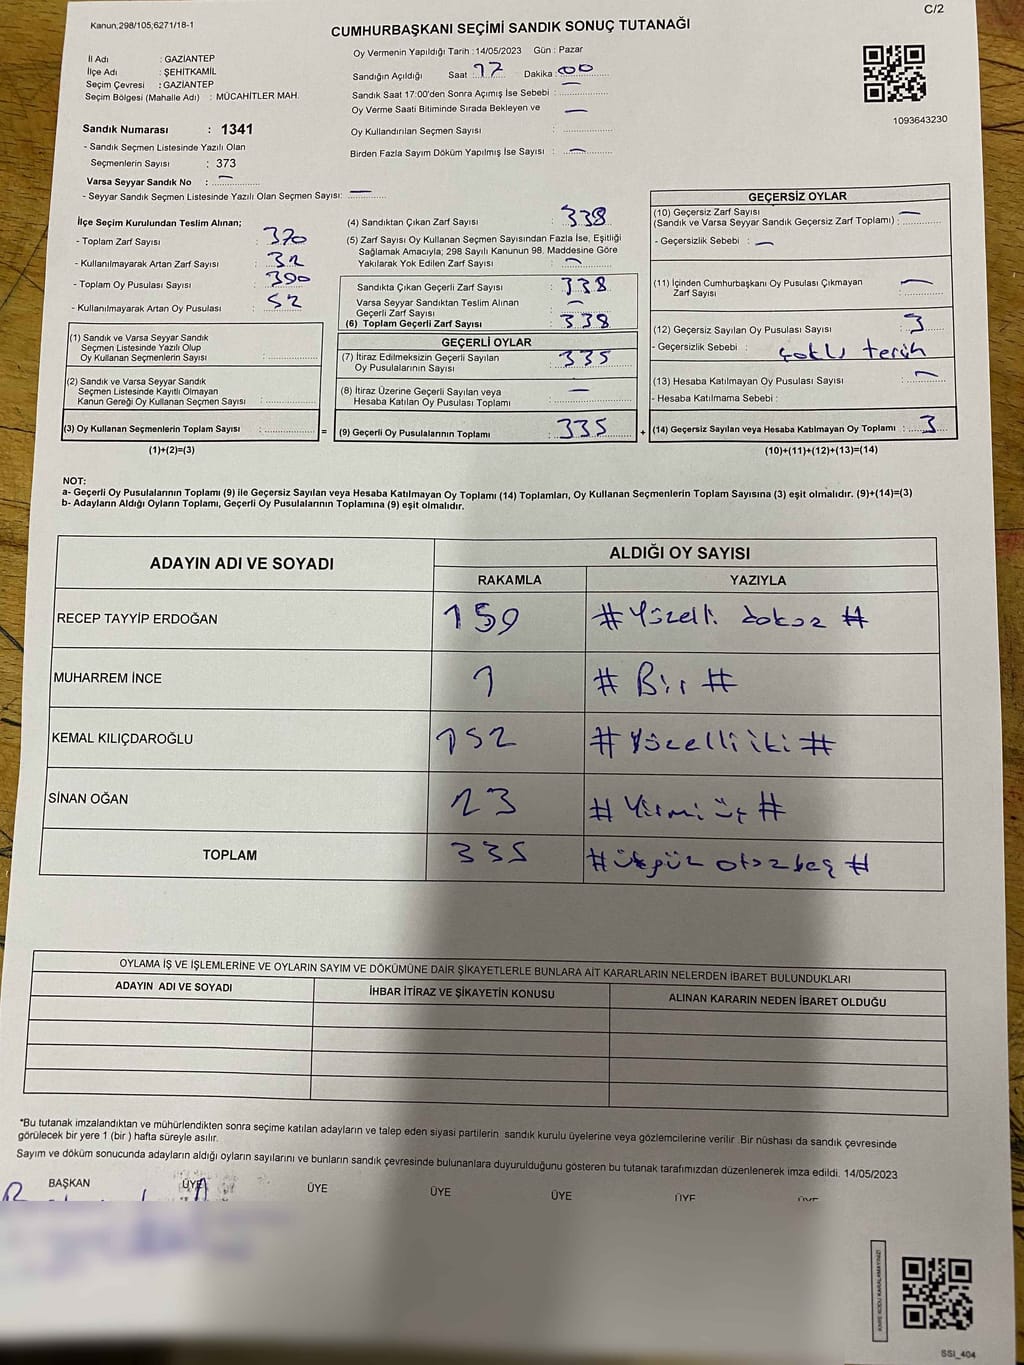 C/2
Kanun;298/105;6271/18-1
CUMHURBAŞKANI SEÇİMİ SANDIK SONUÇ TUTANAĞI
İl Adı : GAZİANTEP
İlçe Adı : ŞEHİTKAMİL
Seçim Çevresi : GAZİANTEP
Seçim Bölgesi (Mahalle Adı) : MÜCAHİTLER MAH.
Sandık Numarası : 1341
- Sandık Seçmen Listesinde Yazılı Olan
Seçmenlerin Sayısı : 373
Varsa Seyyar Sandık No : —
- Seyyar Sandık Seçmen Listesinde Yazılı Olan Seçmen Sayısı: —
Oy Vermenin Yapıldığı Tarih : 14/05/2023 Gün : Pazar
Sandığın Açıldığı Saat : 17 Dakika : 00
Sandık Saat 17:00'den Sonra Açımış İse Sebebi : —
Oy Verme Saati Bitiminde Sırada Bekleyen ve —
Oy Kullandırılan Seçmen Sayısı :
Birden Fazla Sayım Döküm Yapılmış İse Sayısı : —
1093643230
İlçe Seçim Kurulundan Teslim Alınan;
- Toplam Zarf Sayısı : 370
- Kullanılmayarak Artan Zarf Sayısı : 32
- Toplam Oy Pusulası Sayısı : 390
- Kullanılmayarak Artan Oy Pusulası : 52
(1) Sandık ve Varsa Seyyar Sandık
Seçmen Listesinde Yazılı Olup
Oy Kullanan Seçmenlerin Sayısı :
(2) Sandık ve Varsa Seyyar Sandık
Seçmen Listesinde Kayıtlı Olmayan
Kanun Gereği Oy Kullanan Seçmen Sayısı :
(3) Oy Kullanan Seçmenlerin Toplam Sayısı : =
(1)+(2)=(3)
(4) Sandıktan Çıkan Zarf Sayısı : 338
(5) Zarf Sayısı Oy Kullanan Seçmen Sayısından Fazla İse, Eşitliği
Sağlamak Amacıyla; 298 Sayılı Kanunun 98. Maddesine Göre
Yakılarak Yok Edilen Zarf Sayısı : —
Sandıkta Çıkan Geçerli Zarf Sayısı : 338
Varsa Seyyar Sandıktan Teslim Alınan
Geçerli Zarf Sayısı : —
(6) Toplam Geçerli Zarf Sayısı : 338
GEÇERLİ OYLAR
(7) İtiraz Edilmeksizin Geçerli Sayılan
Oy Pusulalarının Sayısı : 335
(8) İtiraz Üzerine Geçerli Sayılan veya
Hesaba Katılan Oy Pusulası Toplamı : —
(9) Geçerli Oy Pusulalarının Toplamı : 335 +
GEÇERSİZ OYLAR
(10) Geçersiz Zarf Sayısı —
(Sandık ve Varsa Seyyar Sandık Geçersiz Zarf Toplamı) :
- Geçersizlik Sebebi : —
(11) İçinden Cumhurbaşkanı Oy Pusulası Çıkmayan
Zarf Sayısı : —
(12) Geçersiz Sayılan Oy Pusulası Sayısı : 3
- Geçersizlik Sebebi : çoklu tercih
(13) Hesaba Katılmayan Oy Pusulası Sayısı : —
- Hesaba Katılmama Sebebi :
(14) Geçersiz Sayılan veya Hesaba Katılmayan Oy Toplamı : 3
(10)+(11)+(12)+(13)=(14)
NOT:
a- Geçerli Oy Pusulalarının Toplamı (9) ile Geçersiz Sayılan veya Hesaba Katılmayan Oy Toplamı (14) Toplamları, Oy Kullanan Seçmenlerin Toplam Sayısına (3) eşit olmalıdır. (9)+(14)=(3)
b- Adayların Aldığı Oyların Toplamı, Geçerli Oy Pusulalarının Toplamına (9) eşit olmalıdır.
ADAYIN ADI VE SOYADI ALDIĞI OY SAYISI
RAKAMLA YAZIYLA
RECEP TAYYİP ERDOĞAN 159 # Yüzelli dokuz #
MUHARREM İNCE 1 # Bir #
KEMAL KILIÇDAROĞLU 152 # Yüzelli iki #
SİNAN OĞAN 23 # Yirmi üç #
TOPLAM 335 # üçyüz otuz beş #
OYLAMA İŞ VE İŞLEMLERİNE VE OYLARIN SAYIM VE DÖKÜMÜNE DAİR ŞİKAYETLERLE BUNLARA AİT KARARLARIN NELERDEN İBARET BULUNDUKLARI
ADAYIN ADI VE SOYADI İHBAR İTİRAZ VE ŞİKAYETİN KONUSU ALINAN KARARIN NEDEN İBARET OLDUĞU
*Bu tutanak imzalandıktan ve mühürlendikten sonra seçime katılan adayların ve talep eden siyasi partilerin sandık kurulu üyelerine veya gözlemcilerine verilir .Bir nüshası da sandık çevresinde
görülecek bir yere 1 (bir ) hafta süreyle asılır.
Sayım ve döküm sonucunda adayların aldığı oyların sayılarını ve bunların sandık çevresinde bulunanlara duyurulduğunu gösteren bu tutanak tarafımızdan düzenlenerek imza edildi. 14/05/2023
BAŞKAN ÜYE ÜYE ÜYE ÜYE ÜYE ÜYE
KARE KODU KARALAMAYINIZ!
SSI_404